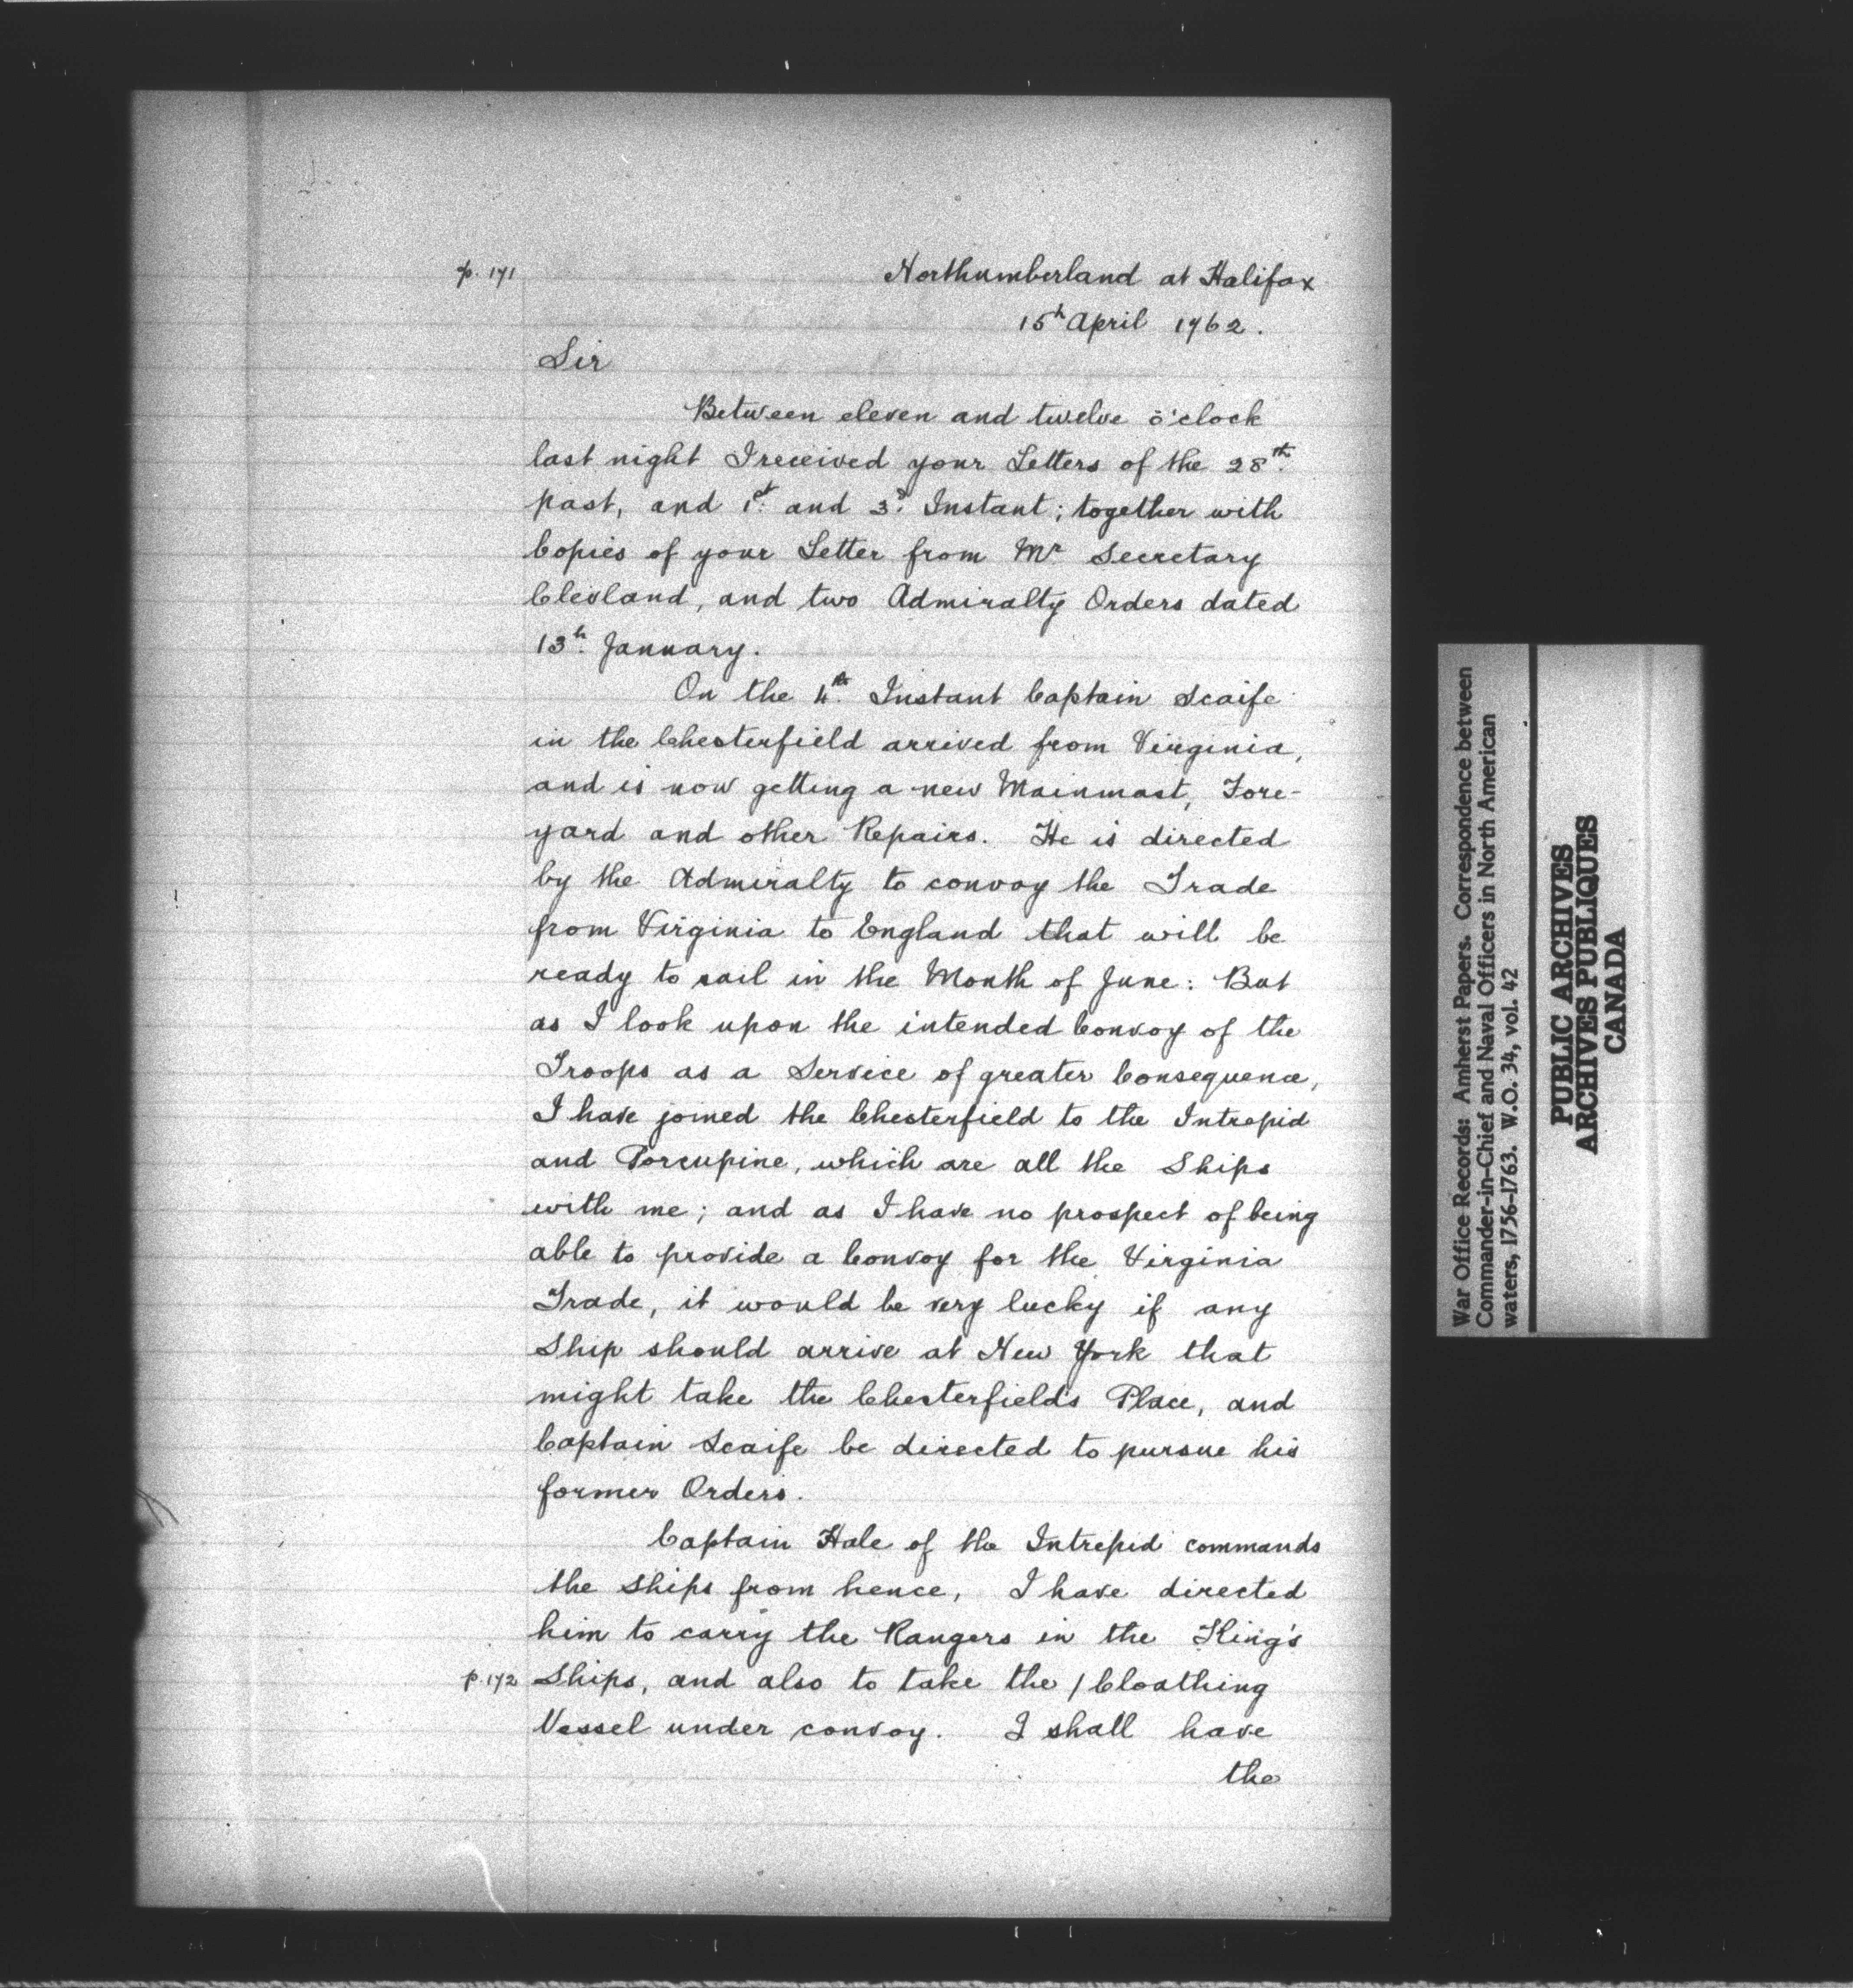 p. 171
Northumberland at Halifax
15th April 1762.
Sir
Between eleven and twelve o'clock
last night I received your Letters of the 28th.
past, and 1st. and 3d. Instant; together with
Copies of your Letter from Mr. Secretary
Clevland, and two Admiralty Orders dated
13h. January.
On the 4th. Instant Captain Scaife
in the Chesterfield arrived from Virginia,
and is now getting a new Mainmast, Fore-
yard and other Repairs. He is directed
by the Admiralty to convoy the Trade
from Virginia to England that will be
ready to sail in the Month of June: But
as I look upon the intended Convoy of the
Troops as a Service of greater Consequence,
I have joined the Chesterfield to the Intrepid
and Porcupine, which are all the Ships
with me; and as I have no prospect of being
able to provide a Convoy for the Virginia
Trade, it would be very lucky if any
Ship should arrive at New York that
might take the Chesterfield's Place, and
Captain Scaife be directed to pursue his
former Orders.
Captain Hale of the Intrepid commands
the Ships from hence, I have directed
him to carry the Rangers in the King's
p. 172 Ships, and also to take the / Cloathing
Vessel under convoy. I shall have
the
War Office Records: Amherst Papers. Correspondence between
Commander-in-Chief and Naval Officers in North American
waters, 1756-1763. W.O. 34, vol. 42
PUBLIC ARCHIVES
ARCHIVES PUBLIQUES
CANADA